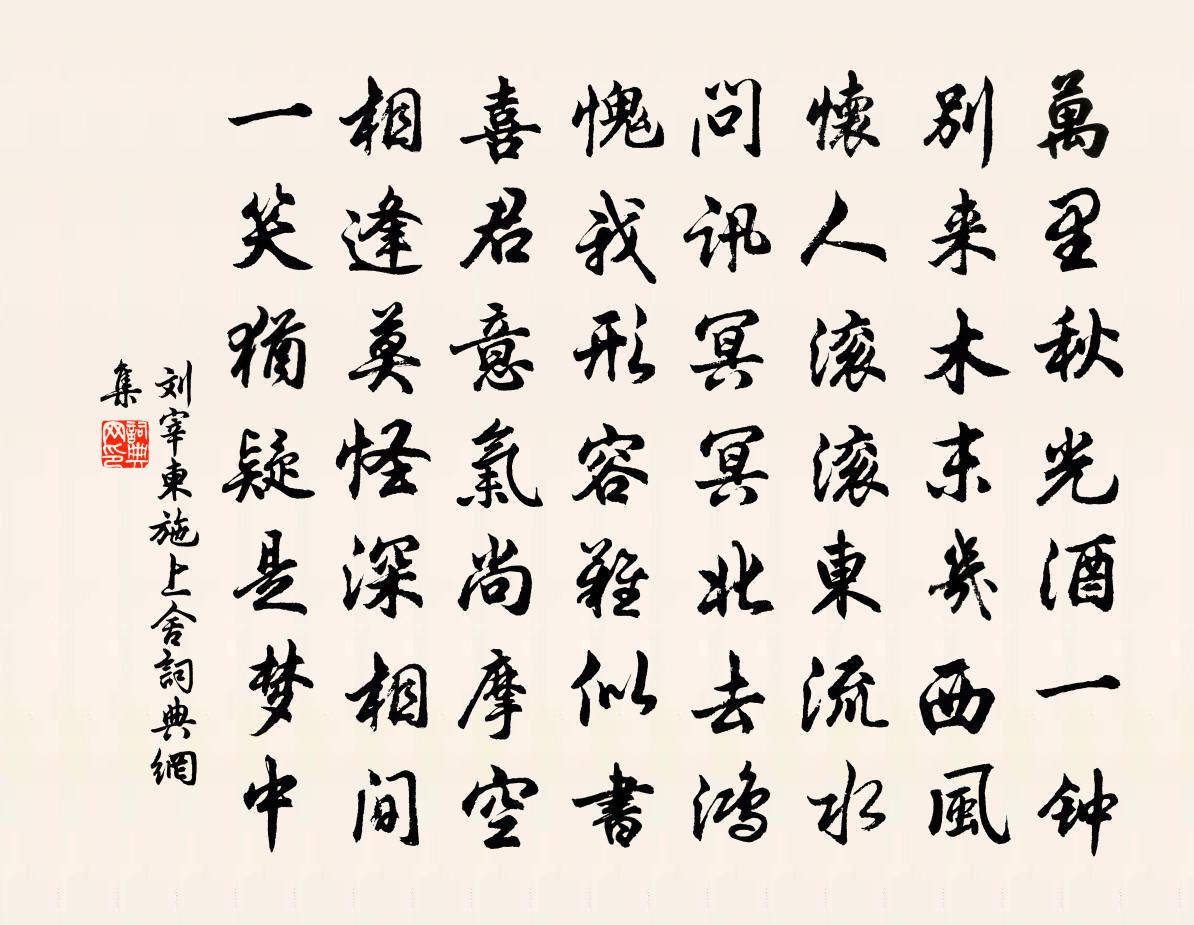 萬里秋光酒一钟
別来木末幾西風
懷人滚滚東流水
問訊冥冥北去鴻
愧我形容難似書
喜君意氣尚摩空
相逢莫怪深相間
一笑猶疑是梦中
刘宰東施上舍詞典網
集
詞典
网印